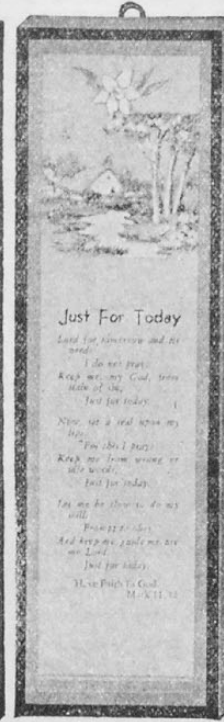 Just For Today
Lord for tomorrow and its
needs
I do not pray;
Keep me, my God, from
stain of sin,
Just for today.
Now, set a seal upon my
lips,
For this I pray;
Keep me from wrong or
idle words,
Just for today.
Let me be slow to do my
will;
Prompt to obey
And keep me, guide me, use
me Lord
Just for today.
Have Faith In God
Mark 11, 22